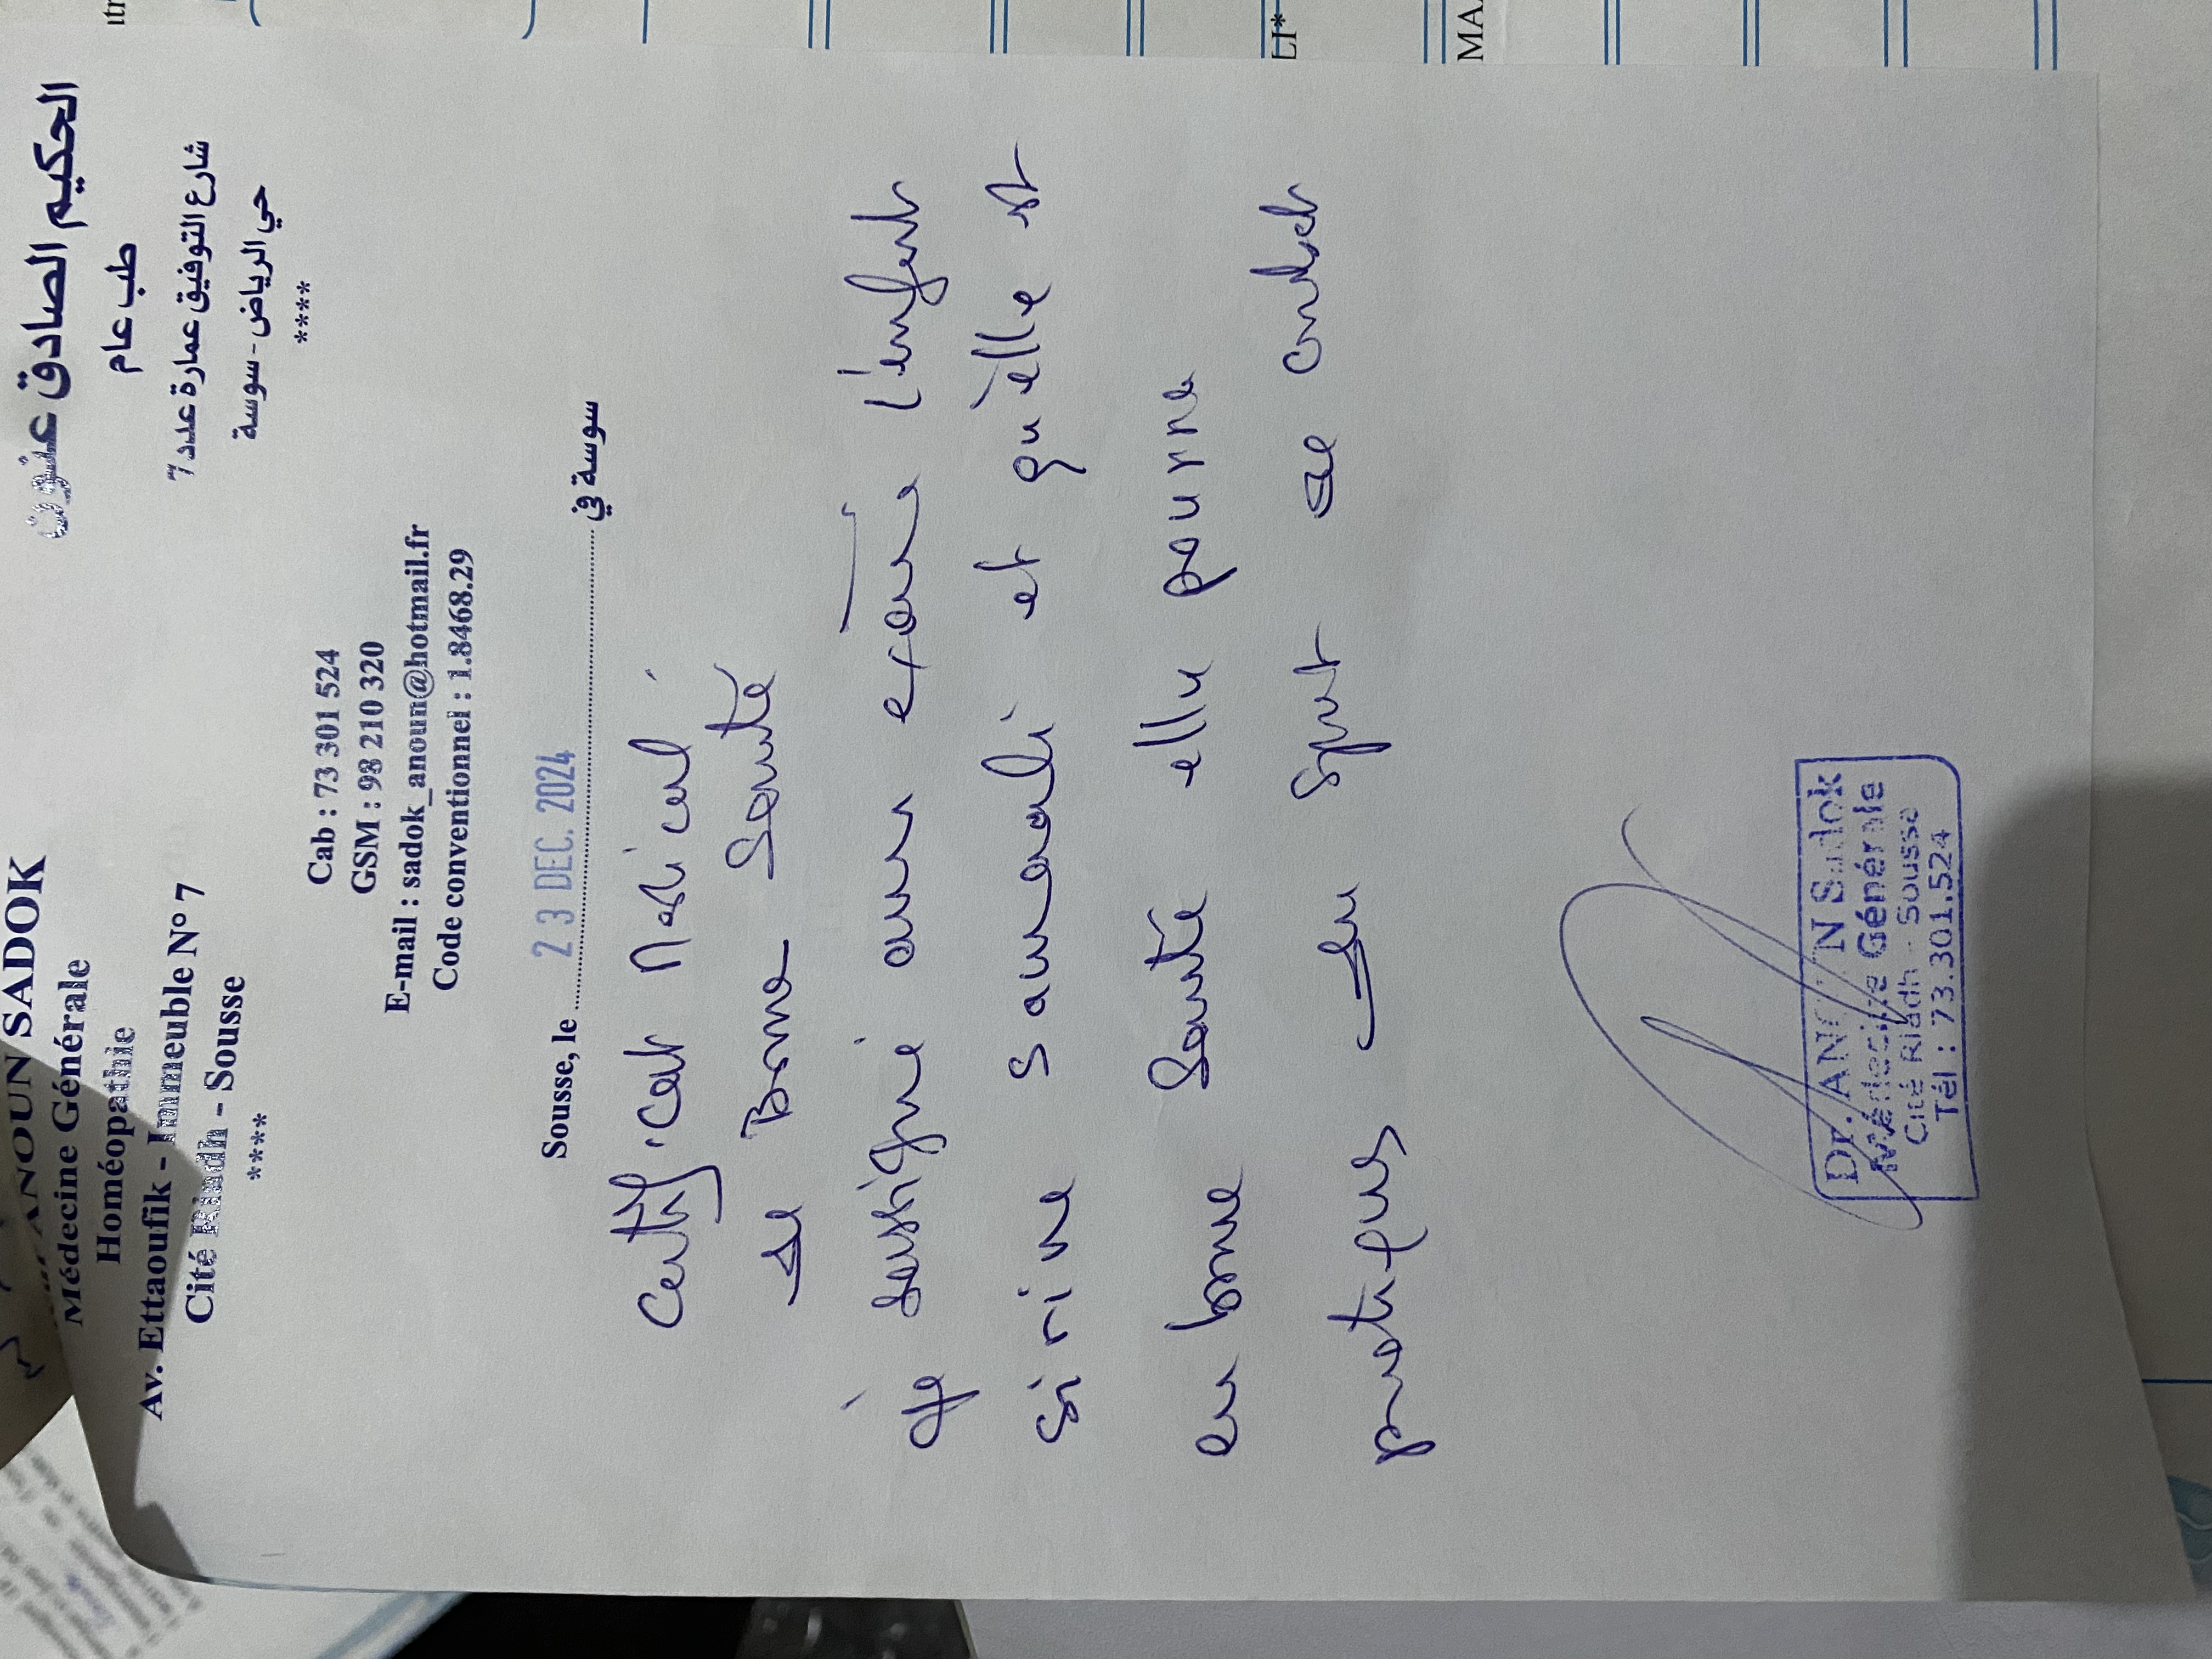 ANOUN SADOK
Médecine Générale
Homéopathie
Av. Ettaoufik - Immeuble N° 7
Cité Riadh - Sousse
****
الحكيم الصادق عنون
طب عام
شارع التوفيق عمارة عدد 7
حي الرياض - سوسة
****
Cab : 73 301 524
GSM : 98 210 320
E-mail : sadok_anoun@hotmail.fr
Code conventionnel : 1.8468.29
Sousse, le 23 DEC. 2024 سوسة في
Certificat Médical
de Bonne Santé
Je soussigné avoir examiné l'enfant
Sirine et qu'elle est
en bonne Santé elle pourra
pratiquer du Sport de
Dr. ANOUN Sadok
Médecine Générale
Cité Riadh - Sousse
Tél : 73.301.524
LI*
MA